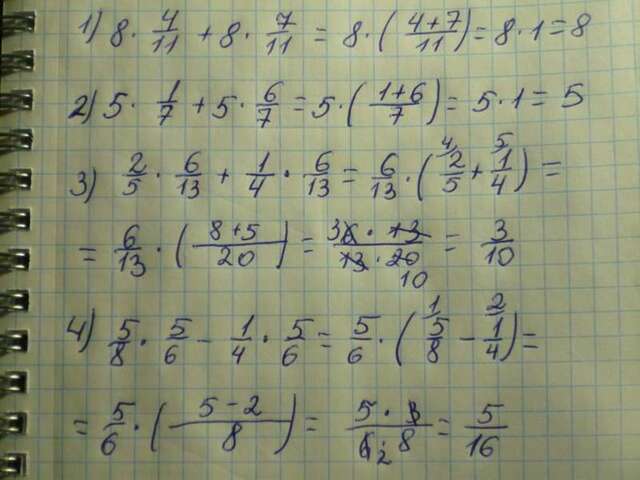 1) 8 · 4/11 + 8 · 7/11 = 8 · ( (4+7)/11 ) = 8 · 1 = 8
2) 5 · 1/7 + 5 · 6/7 = 5 · ( (1+6)/7 ) = 5 · 1 = 5
3) 2/5 · 6/13 + 1/4 · 6/13 = 6/13 · ( ⁴2/5 + ⁵1/4 ) =
= 6/13 · ( (8+5)/20 ) = 3 6 · 13 / 13 · 20 10 = 3/10
4) 5/8 · 5/6 − 1/4 · 5/6 = 5/6 · ( ¹5/8 − ²1/4 ) =
= 5/6 · ( (5−2)/8 ) = 5 · 3 / 6 2 · 8 = 5/16